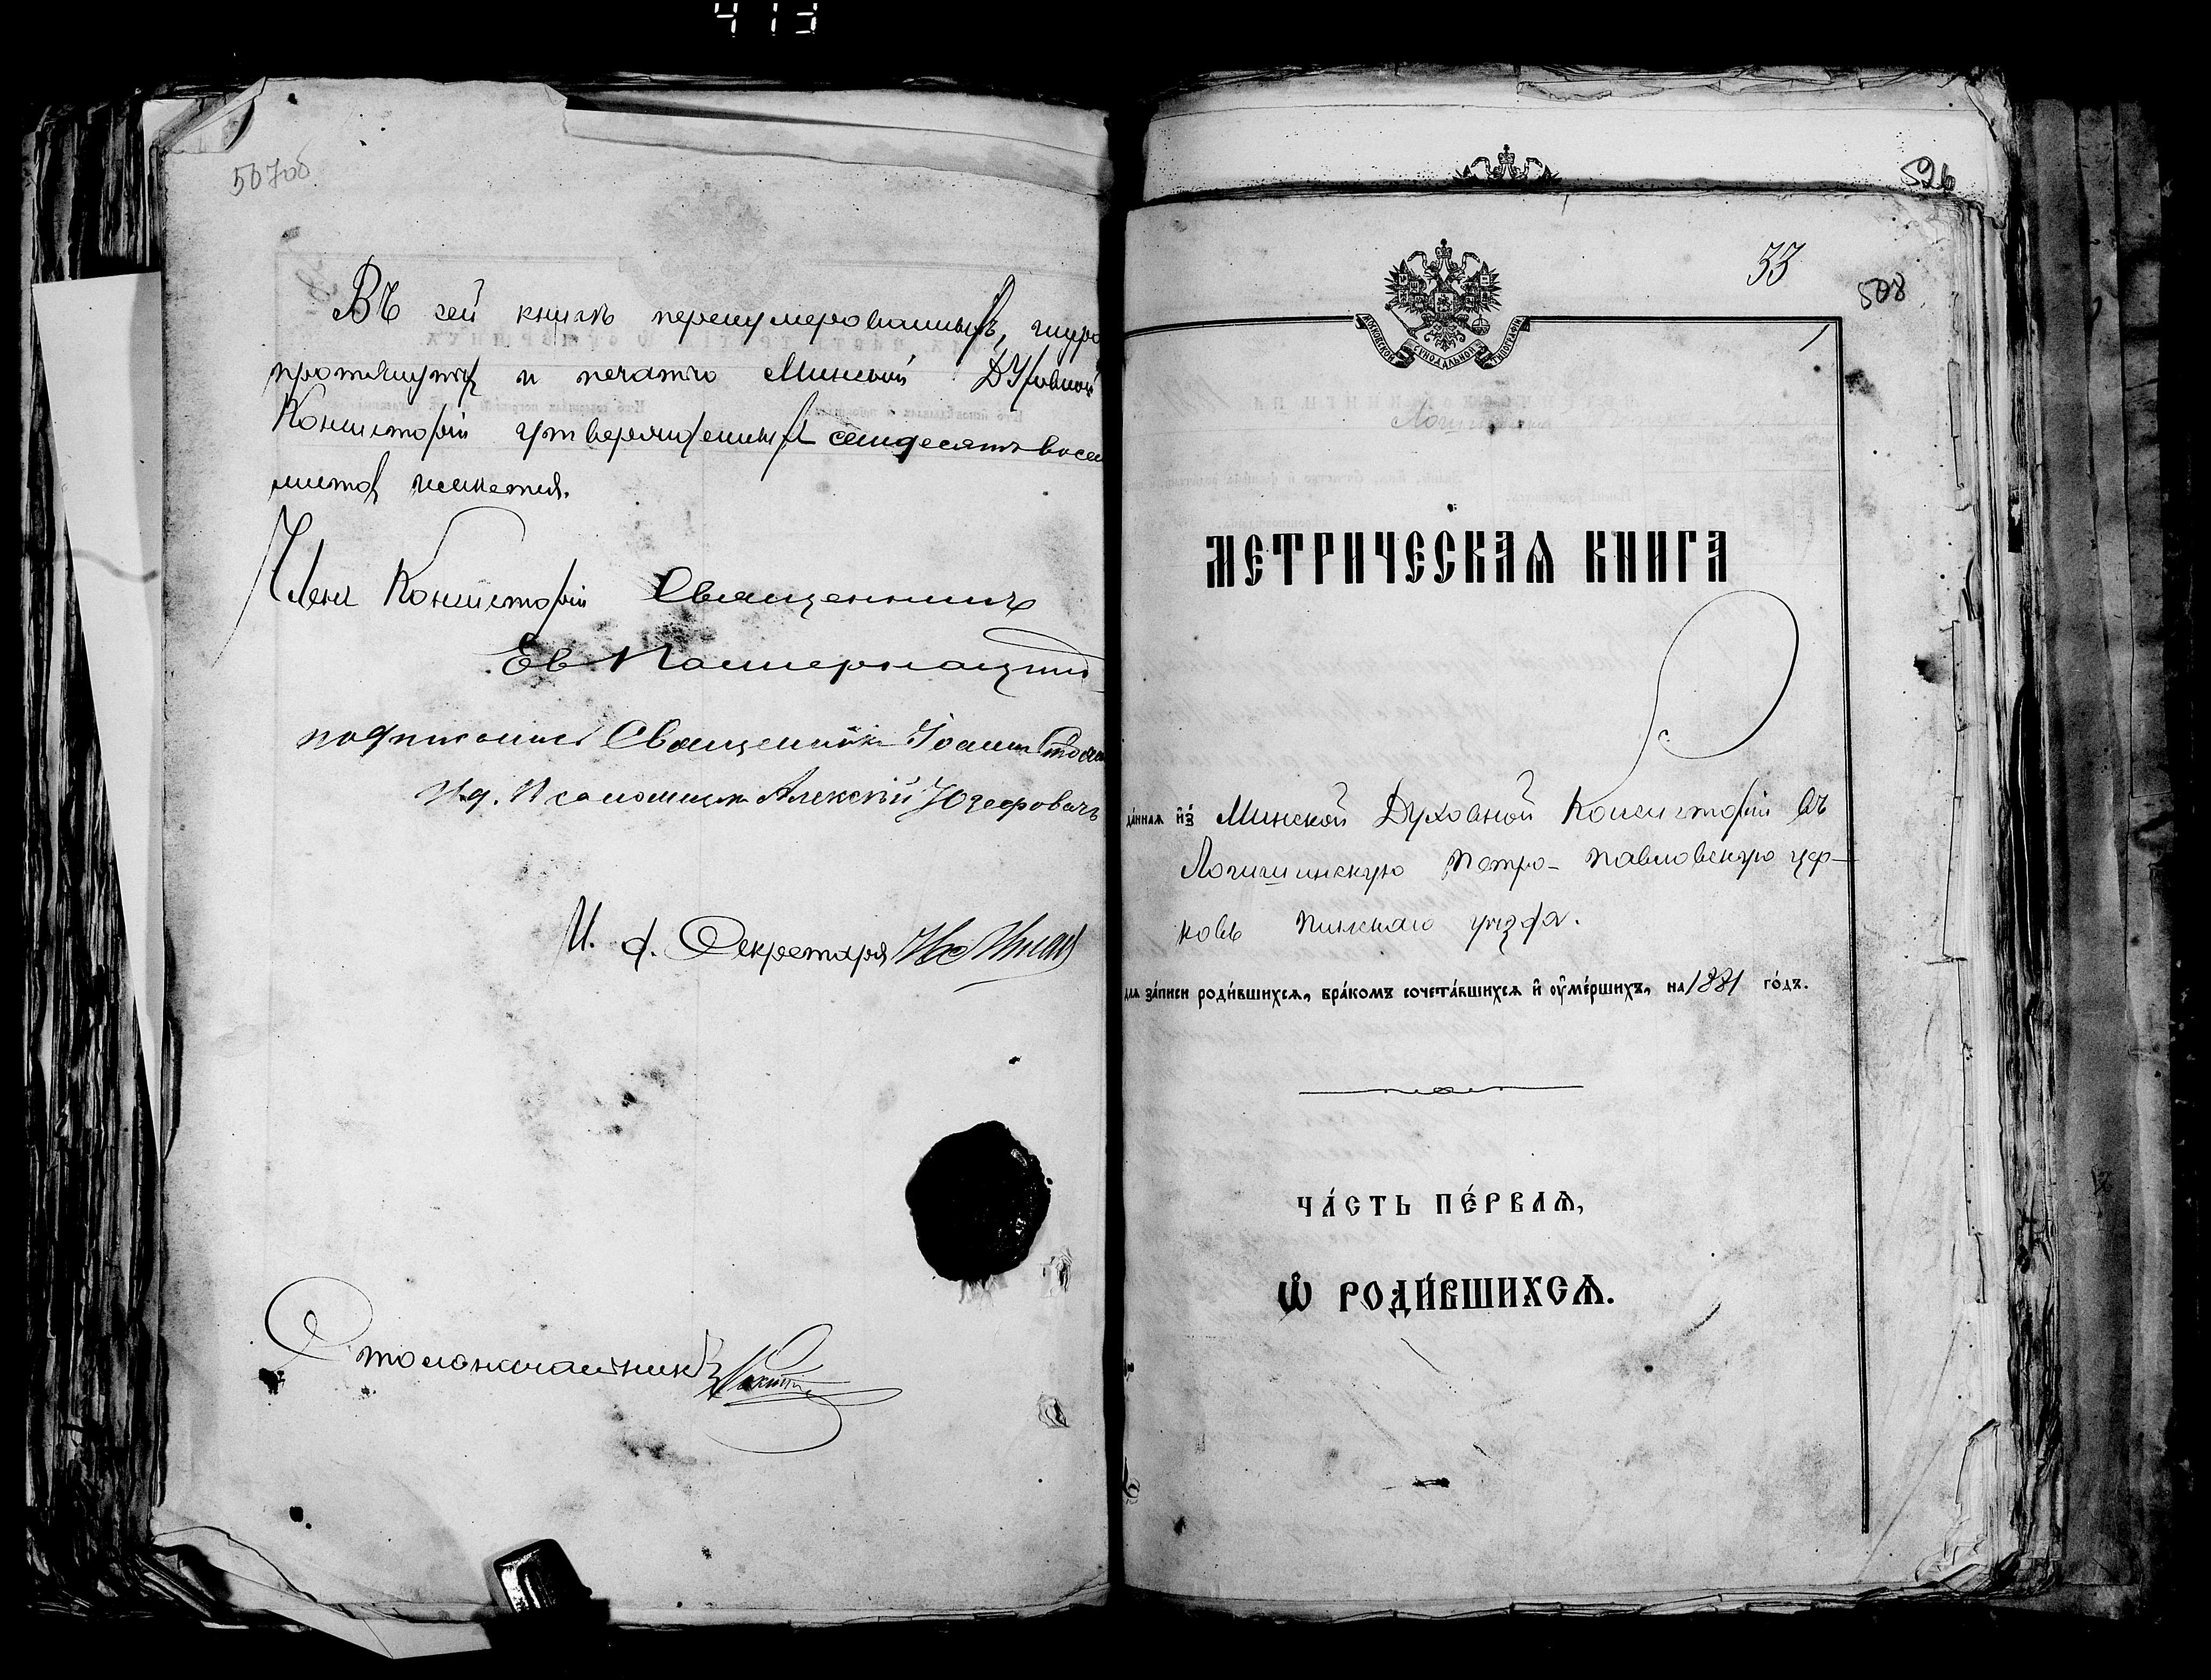 413
507об
Въ сей книгѣ перенумерованныхъ, шнуро
протянутыхъ и печатію Минской Духовной
Консисторіи утвержденныхъ семдесятъ восем
листовъ имѣется.
Членъ Консисторіи Священникъ
Ев Пастернацкій
подписалъ Священникъ Іоаннъ
И.д. Псаломщика Алексѣй Юзефовичъ
И. д. Секретаря
Столоначальникъ
526
33
508
1
МОСКОВСКОЙ СУНОДАЛЬНОЙ ТИПОГРАФІИ
МЕТРИЧЕСКАѦ КНИГА
да́ннаѧ и҆з̾ Минской Духовной Консисторіи въ
Логишинскую Петро-Павловскую цер-
ковь Пинскаго уѣзда.
длѧ за́писи роди́вшихсѧ, бра́комъ сочета́вшихсѧ и҆ ᲂу҆ме́ршихъ, на 1881 го́дъ.
ЧА́СТЬ ПЕ́РВАѦ,
Ѽ РОДИ́ВШИХСѦ.